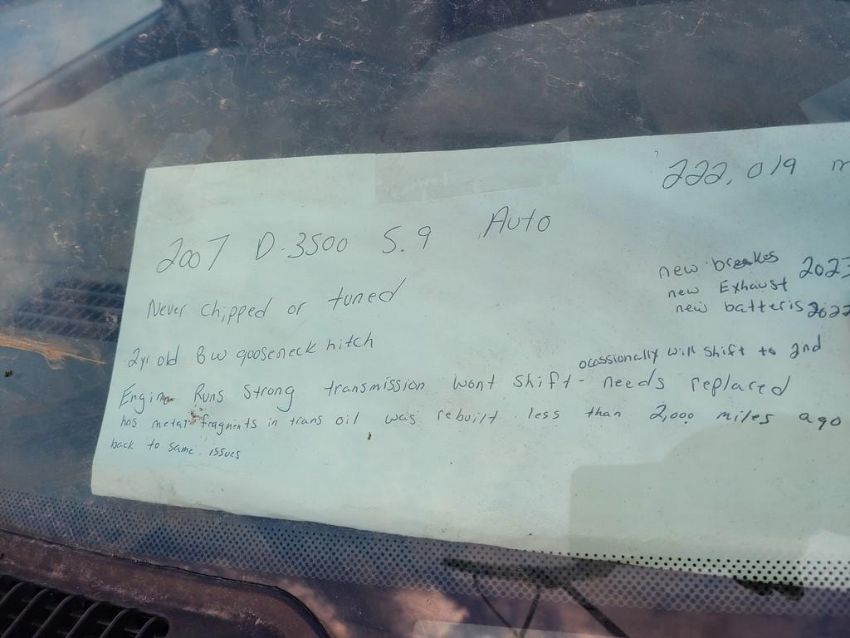 222,019 m
2007 D-3500 5.9 Auto
new breakes 2023
new Exhaust
new batteris 2022
Never chipped or tuned
2yr old BW gooseneck hitch
ocassionally will shift to 2nd
Engine Runs Strong transmission wont shift - needs replaced
has metal fragments in trans oil was rebuilt less than 2,000 miles ago
back to same issues